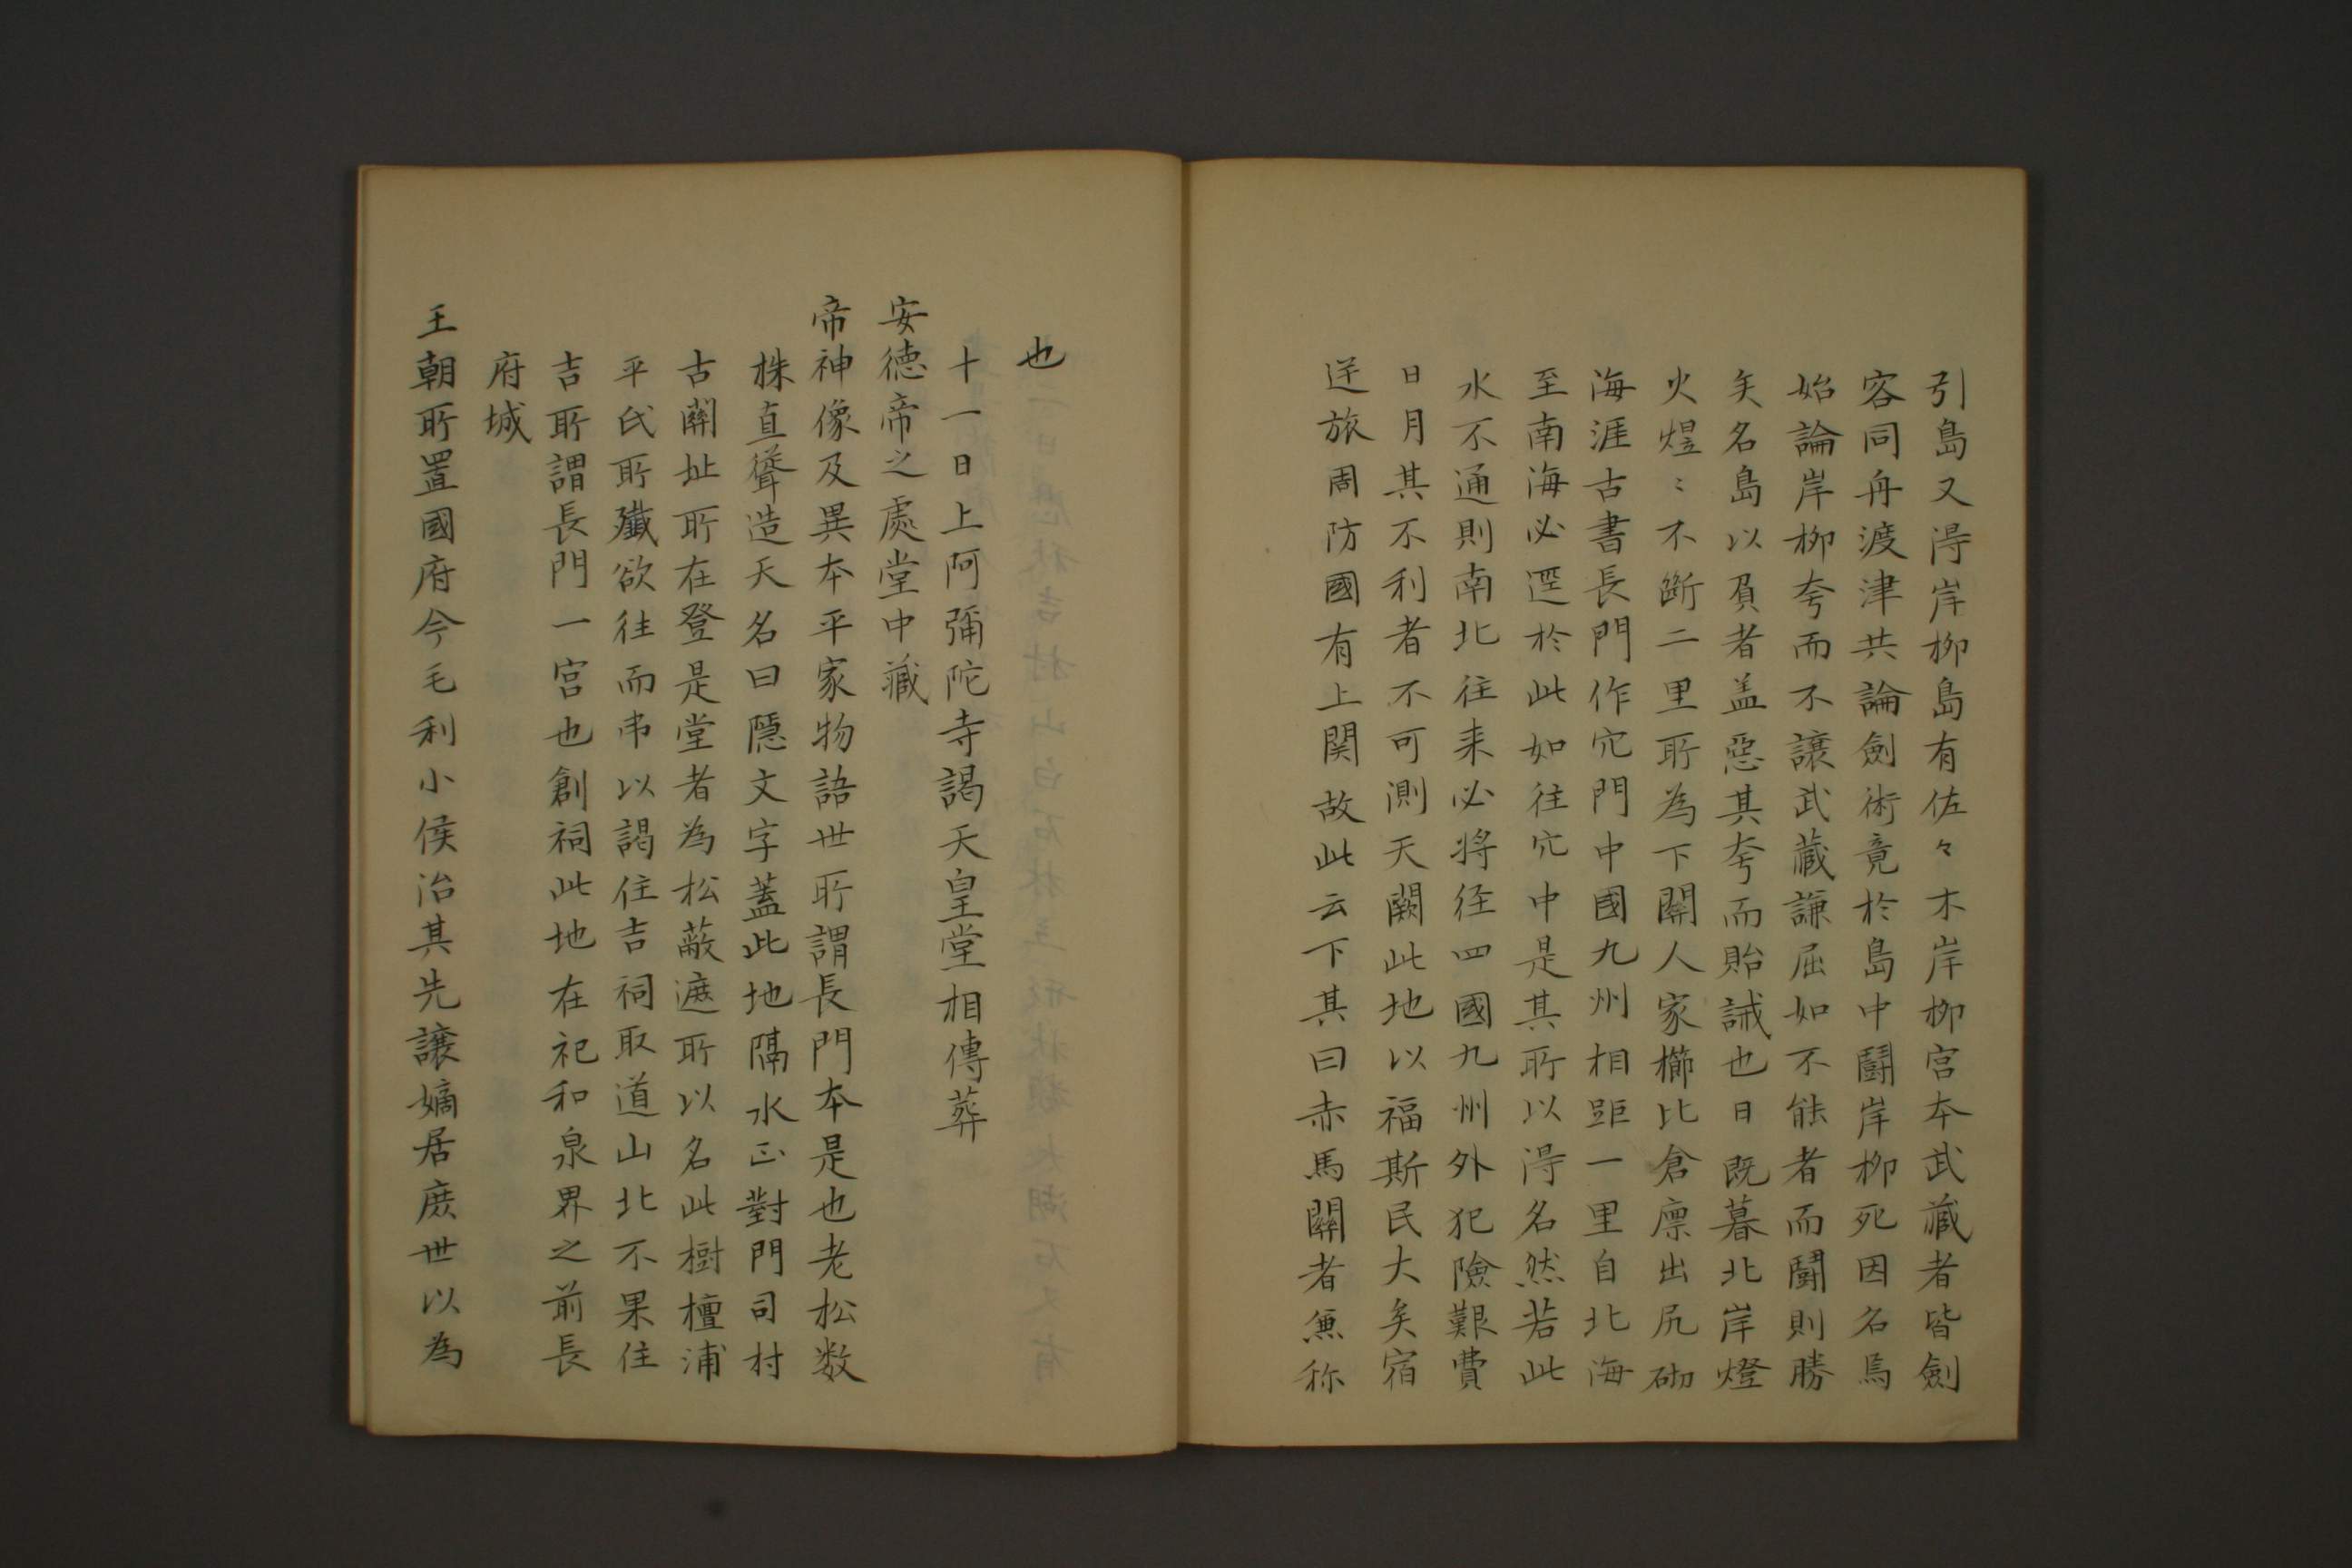 引島又淂岸柳島有佐々木岸柳宮本武藏者皆劍
容同舟渡津共論劍術竟於島中鬪岸柳死因名焉
始論岸柳夸而不讓武藏謙屈如不能者而鬪則勝
矣名島以負者盖惡其夸而貽誡也日既暮北岸燈
火煜〻不斷二里所為下關人家櫛比倉廪出尻砌
海涯古書長門作穴門中國九州相距一里自北海
至南海必逕於此如往穴中是其所以淂名然若此
水不通則南北往来必将径四國九州外犯險艱費
日月其不利者不可測天闕此地以福斯民大矣宿
逆旅周防國有上関故此云下其曰赤馬關者無称
也
十一日上阿彌陀寺謁天皇堂相傳葬
安德帝之處堂中藏
帝神像及異本平家物語世所謂長門本是也老松数
株直聳造天名曰隱文字蓋此地隔水正對門司村
古關址所在登是堂者為松蔽遮所以名此樹檀浦
平氏所殲欲往而弔以謁住吉祠取道山北不果住
吉所謂長門一宮也創祠此地在祀和泉界之前長
府城
王朝所置國府今毛利小侯治其先讓嫡居庶世以為